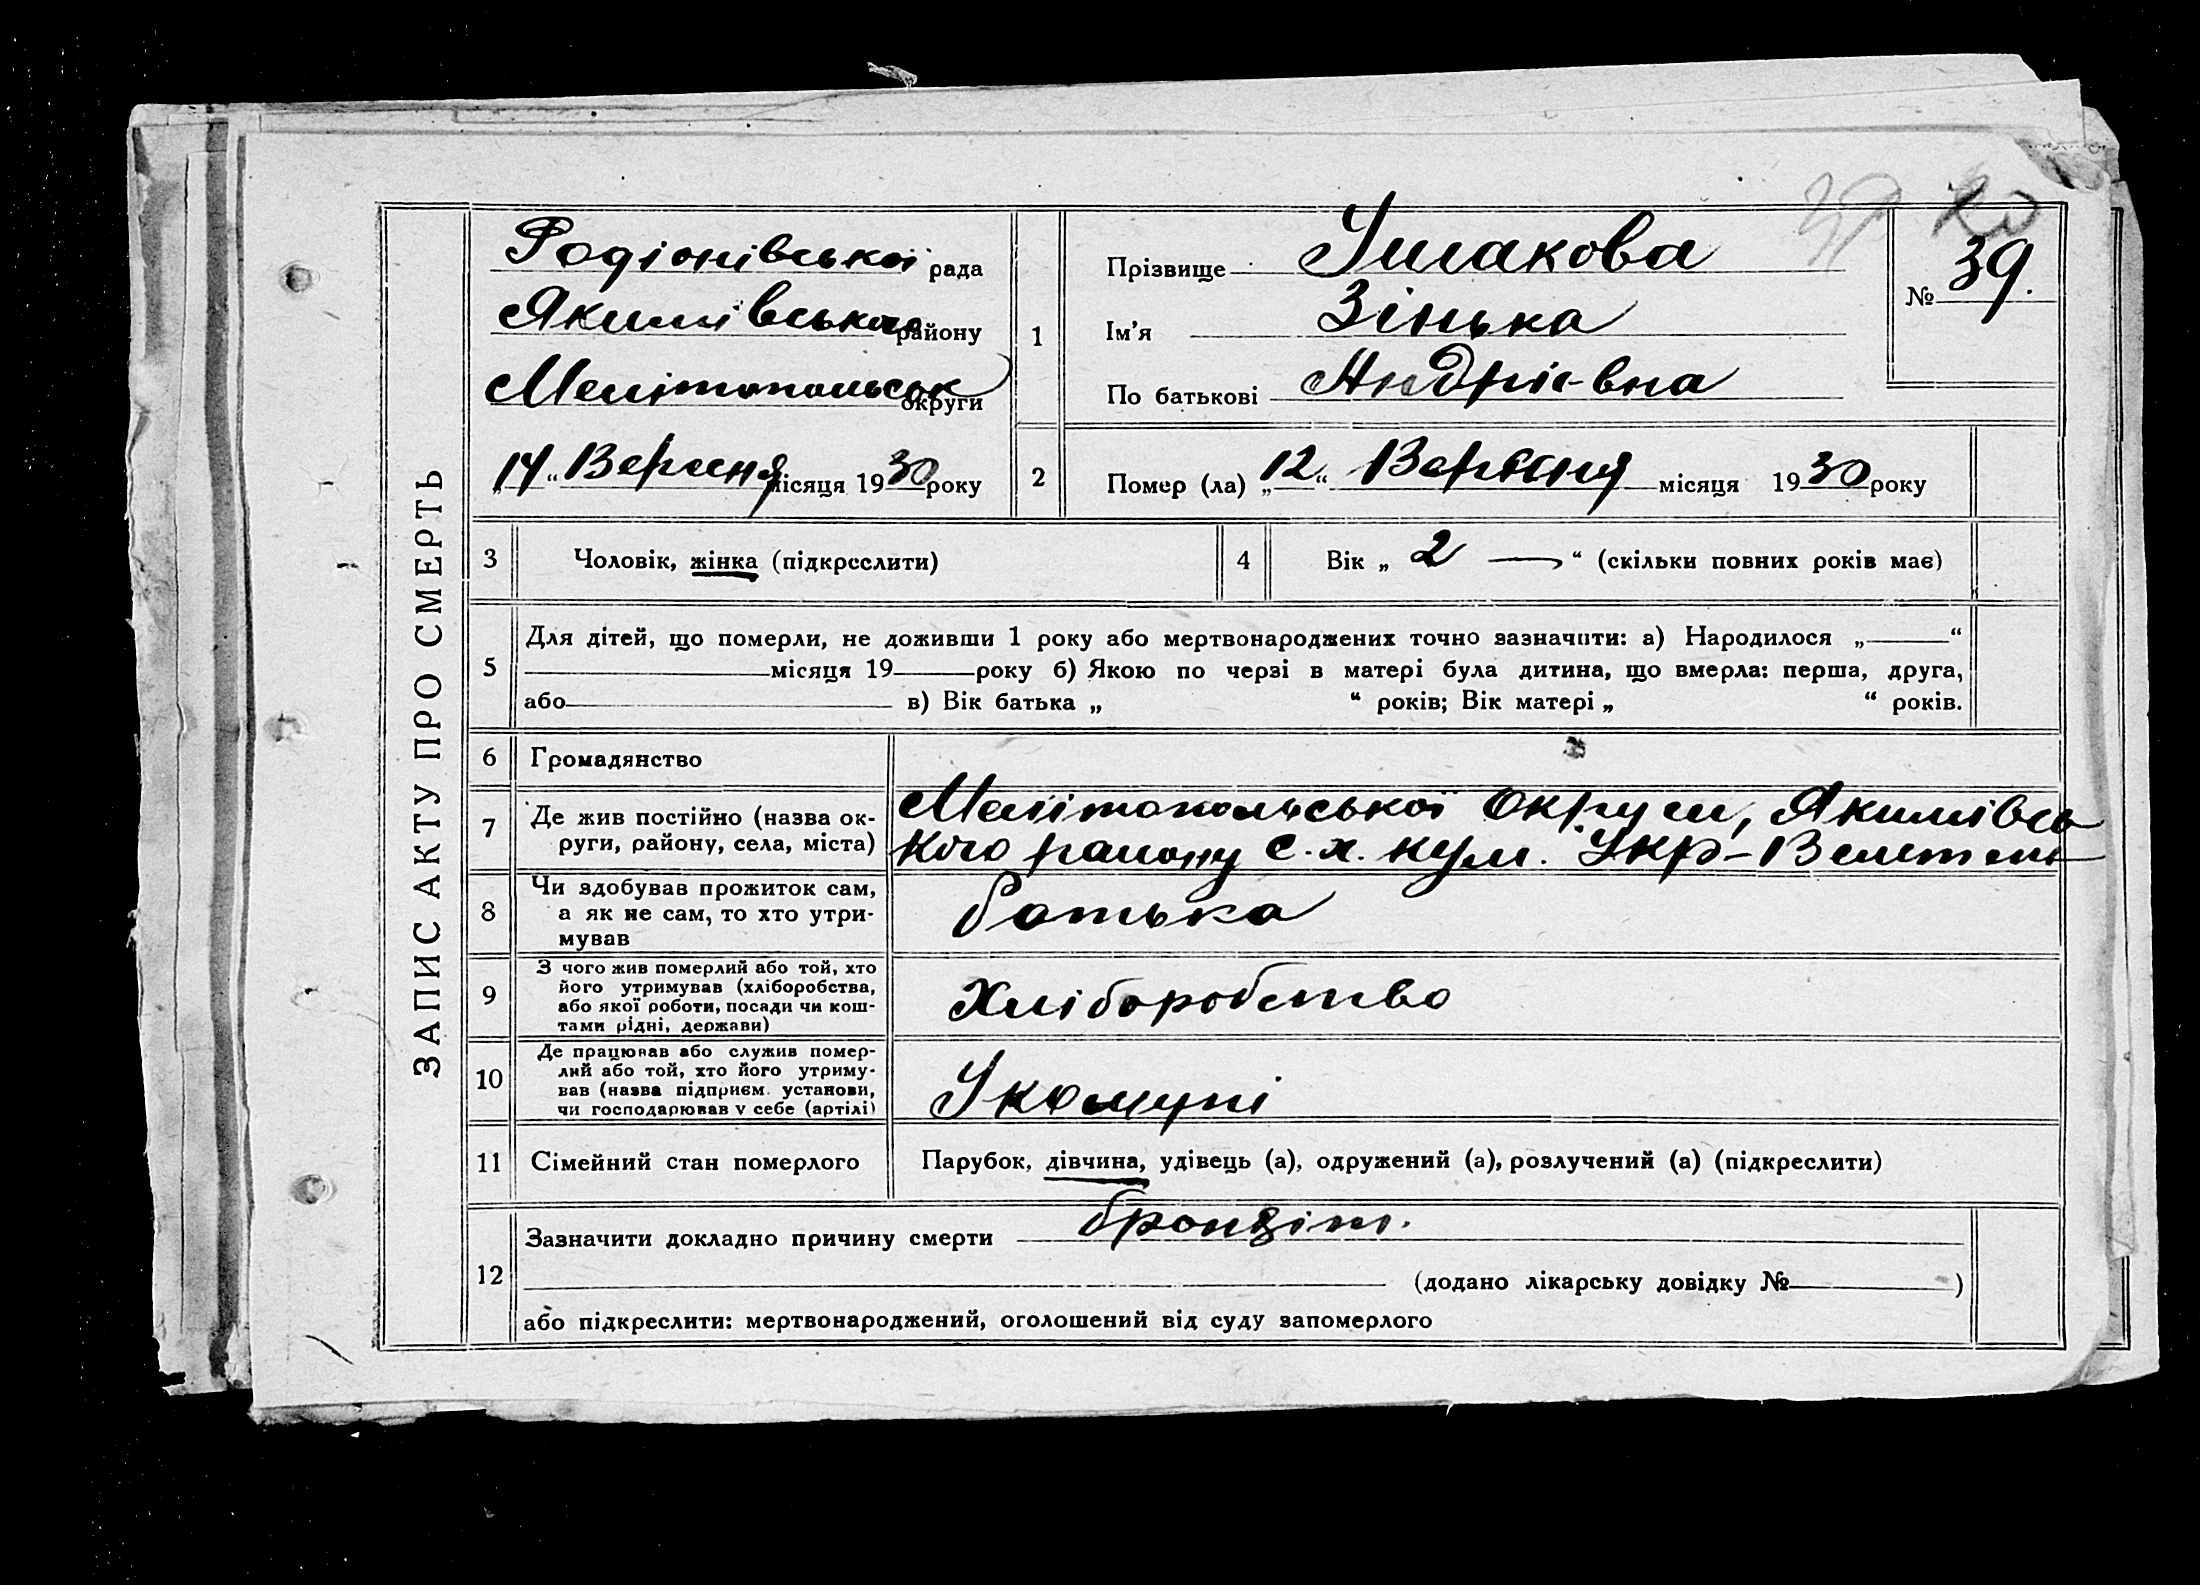 ЗАПИС АКТУ ПРО СМЕРТЬ
Родіонівської рада
Якимівського району
Мелітопольськ округи
„14“ Вересня місяця 1930 року
1
Прізвище Ушакова
Ім’я Зінька
По батькові Андрієвна
№ 39.
2
Помер (ла) „12“ Вересня місяця 1930 року
3 Чоловік, жінка (підкреслити)
4 Вік „ 2 — “ (скільки повних років має)
5
Для дітей, що померли, не доживши 1 року або мертвонароджених точно зазначити: а) Народилося „ “
місяця 19 року б) Якою по черзі в матері була дитина, що вмерла: перша, друга,
або в) Вік батька „ “ років; Вік матері „ “ років.
6 Громадянство
7 Де жив постійно (назва ок-
руги, району, села, міста)
Мелітопольської Округи, Якимівсь
кого району С. х. кум. Укр-
8 Чи здобував прожиток сам,
а як не сам, то хто утри-
мував
батька
9 З чого жив померлий або той, хто
його утримував (хліборобства,
або якої роботи, посади чи кош-
тами рідні, держави)
Хліборобство
10 Де працював або служив помер-
лий або той, хто його утриму-
вав (назва підприєм. установи,
чи господарював у себе (артілі)
Укомуні
11 Сімейний стан померлого
Парубок, дівчина, удівець (а), одружений (а), розлучений (а) (підкреслити)
12
Зазначити докладно причину смерти бронзіт.
(додано лікарську довідку № )
або підкреслити: мертвонароджений, оголошений від суду запомерлого